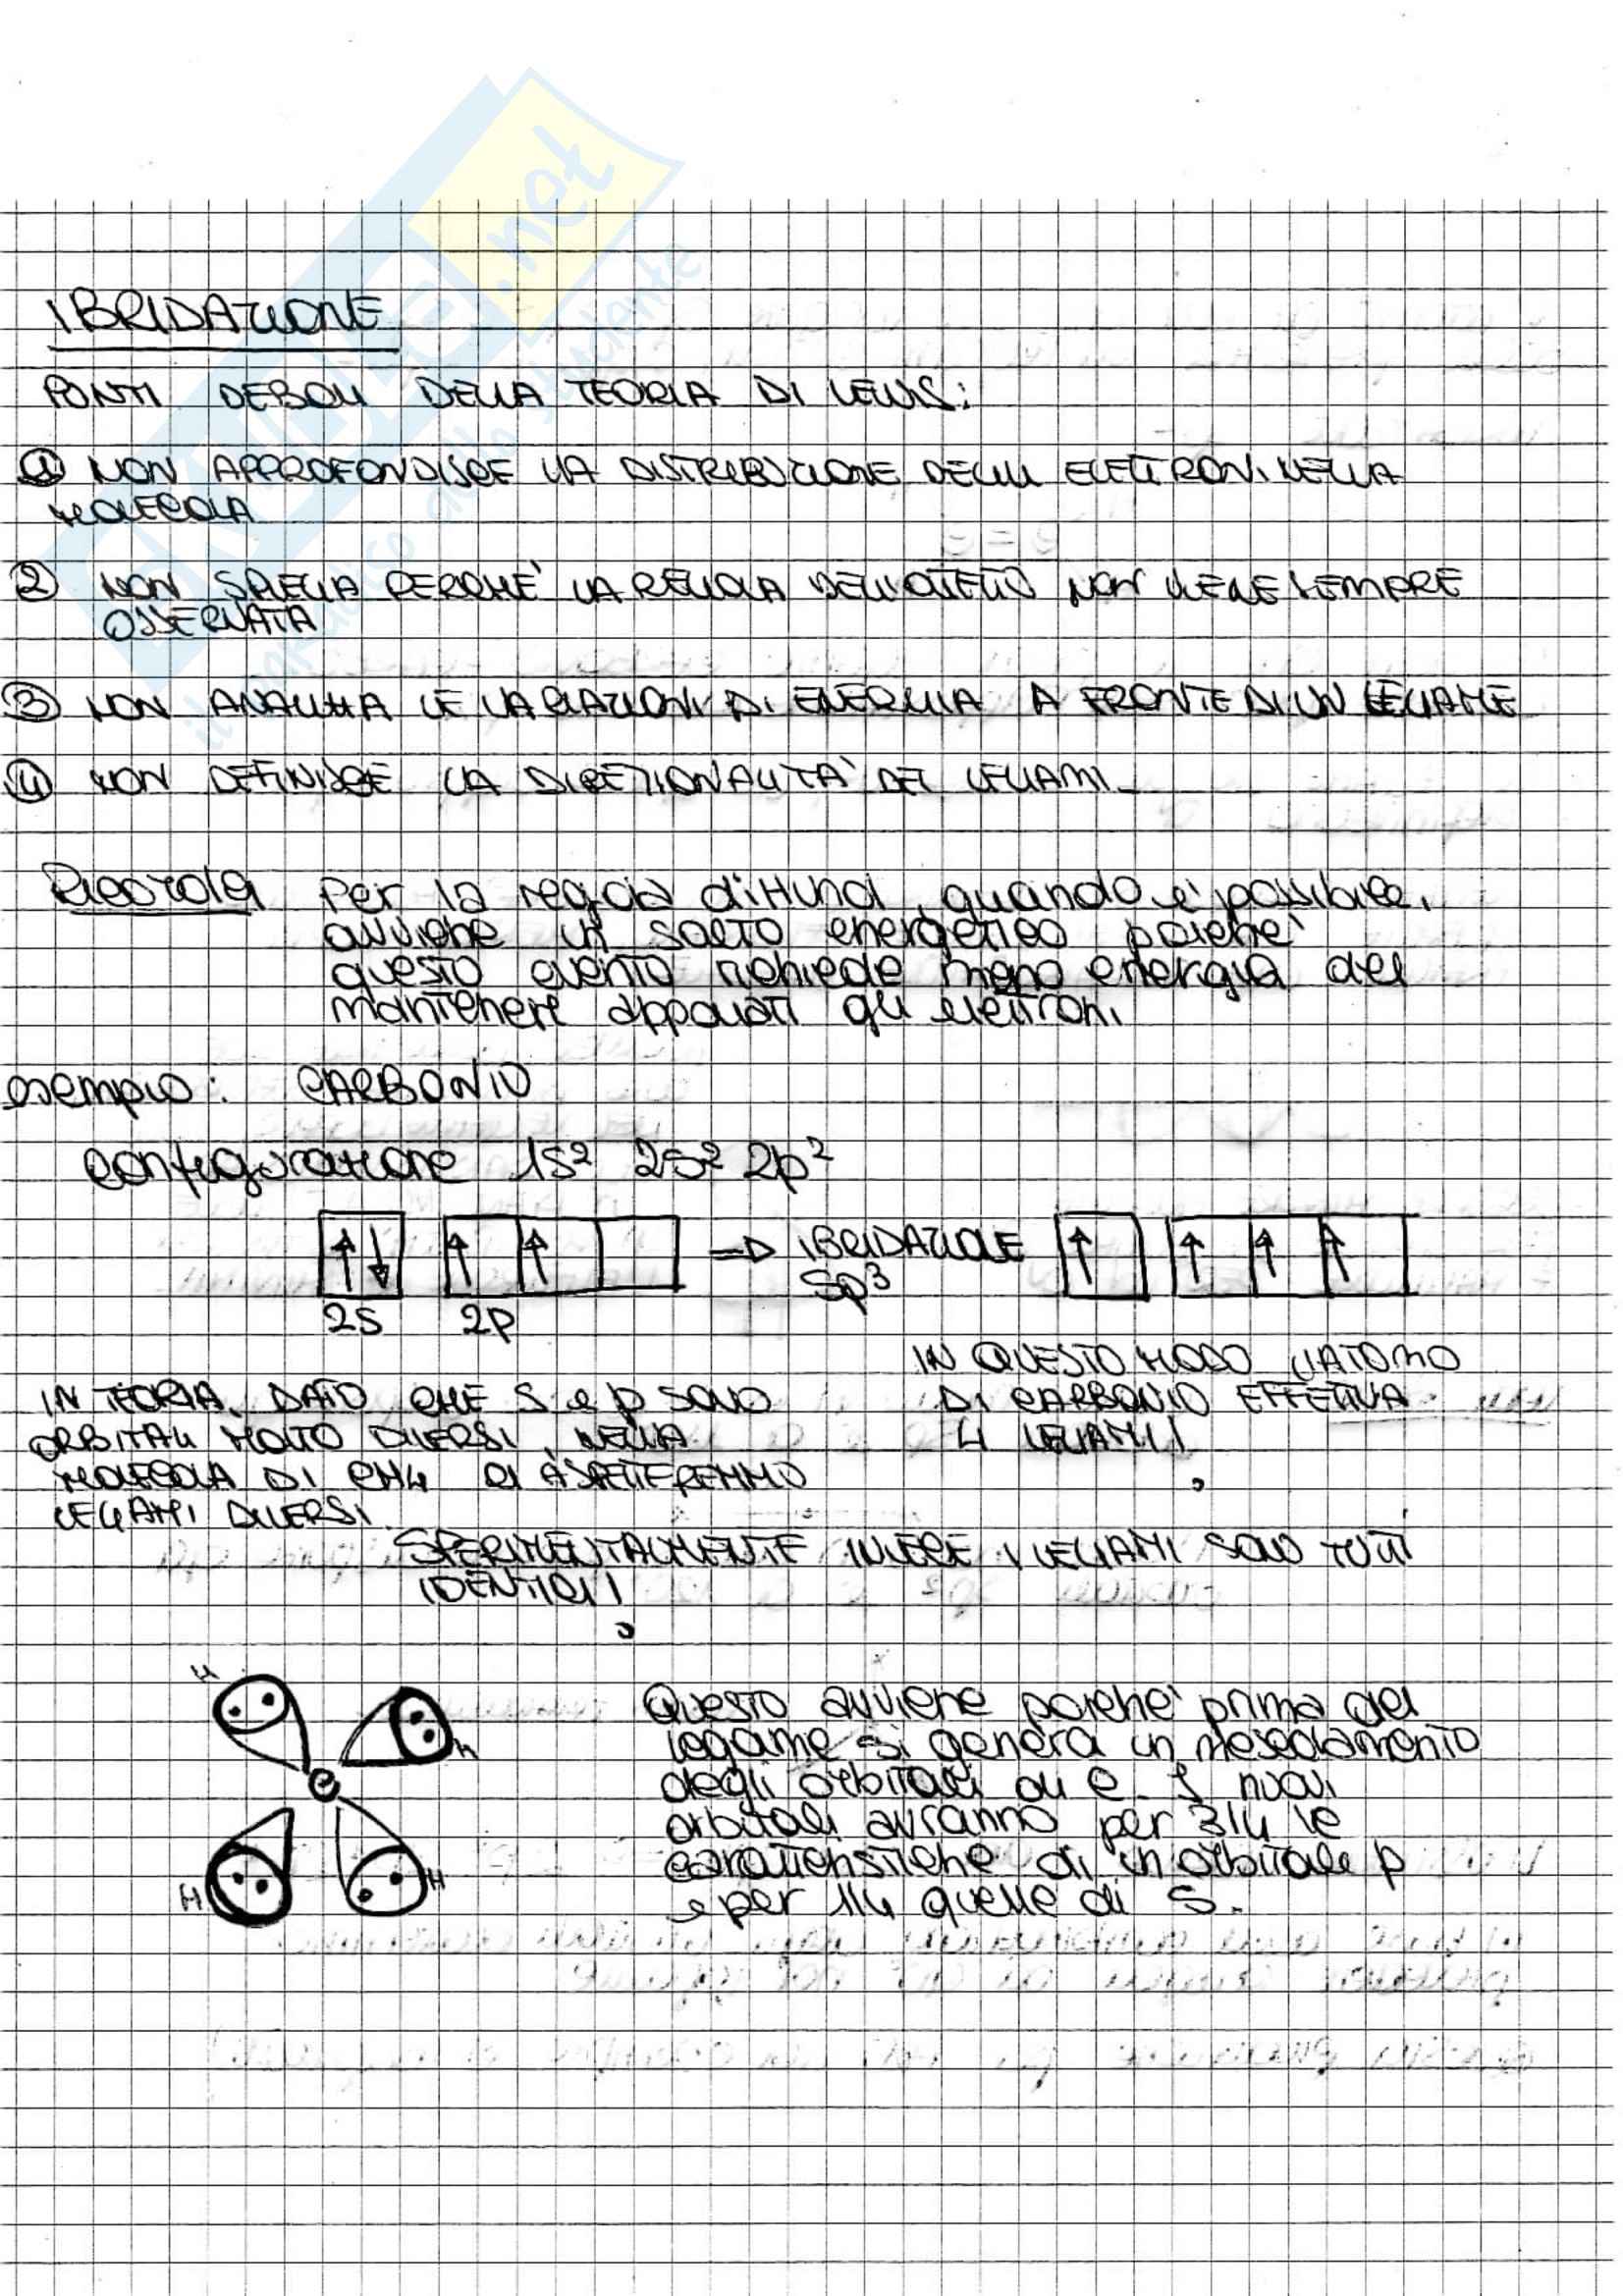 IBRIDAZIONE
PUNTI DEBOLI DELLA TEORIA DI LEWIS:
① NON APPROFONDISCE LA DISTRIBUZIONE DEGLI ELETTRONI NELLA
MOLECOLA
② NON SPIEGA PERCHE' LA REGOLA DELL'OTTETTO NON VIENE SEMPRE
OSSERVATA
③ NON ANALIZZA LE VARIAZIONI DI ENERGIA A FRONTE DI UN LEGAME
④ NON DEFINISCE LA DIREZIONALITA' DEI LEGAMI
Ricorda Per la regola di Hund, quando e' possibile,
avviene un salto energetico poiche'
questo evento richiede meno energia del
mantenere appaiati gli elettroni
esempio: CARBONIO
configurazione 1s² 2s² 2p²
=> IBRIDAZIONE
sp³
2s 2p
IN QUESTO MODO L'ATOMO
DI CARBONIO EFFETTUA
4 LEGAMI!
IN TEORIA, DATO CHE S e p SONO
ORBITALI MOLTO DIVERSI, NELLA
MOLECOLA DI CH4 CI ASPETTEREMMO
LEGAMI DIVERSI.
SPERIMENTALMENTE INVECE I LEGAMI SONO TUTTI
IDENTICI!
H
H
C
H
H
Questo avviene poiche' prima del
legame si genera un mescolamento
degli orbitali di C. I nuovi
orbitali avranno per 3/4 le
caratteristiche di un orbitale p
e per 1/4 quelle di s.
.net